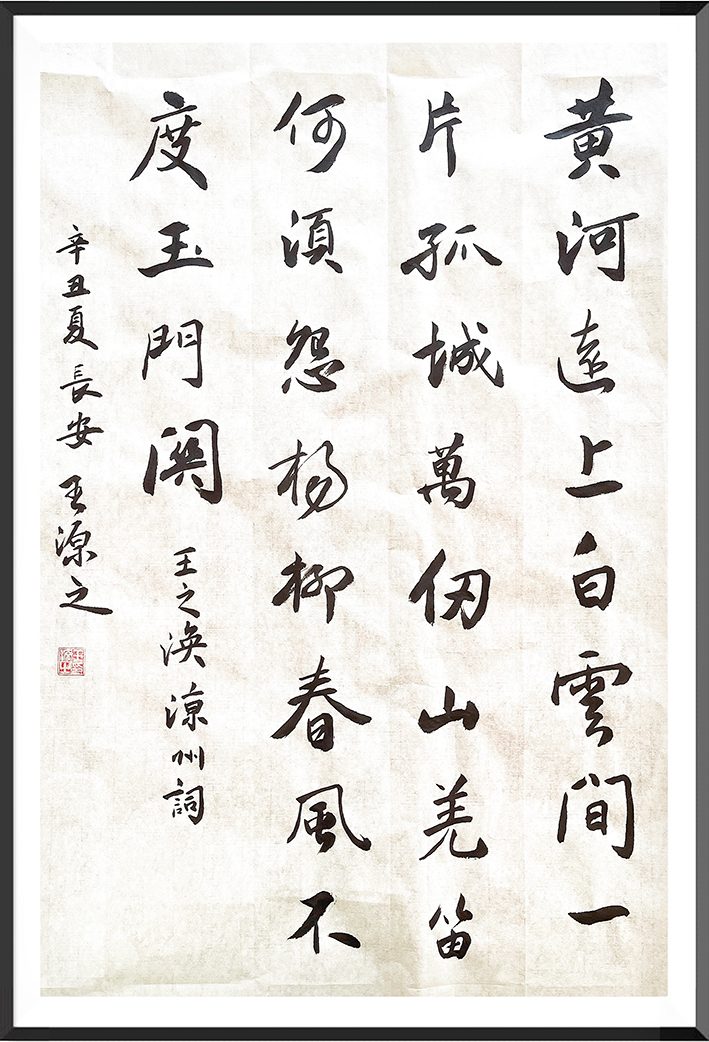 黄河遠上白雲間一
片孤城萬仞山羌笛
何須怨楊柳春風不
度玉門関
王之渙涼州詞
辛丑夏長安王源之